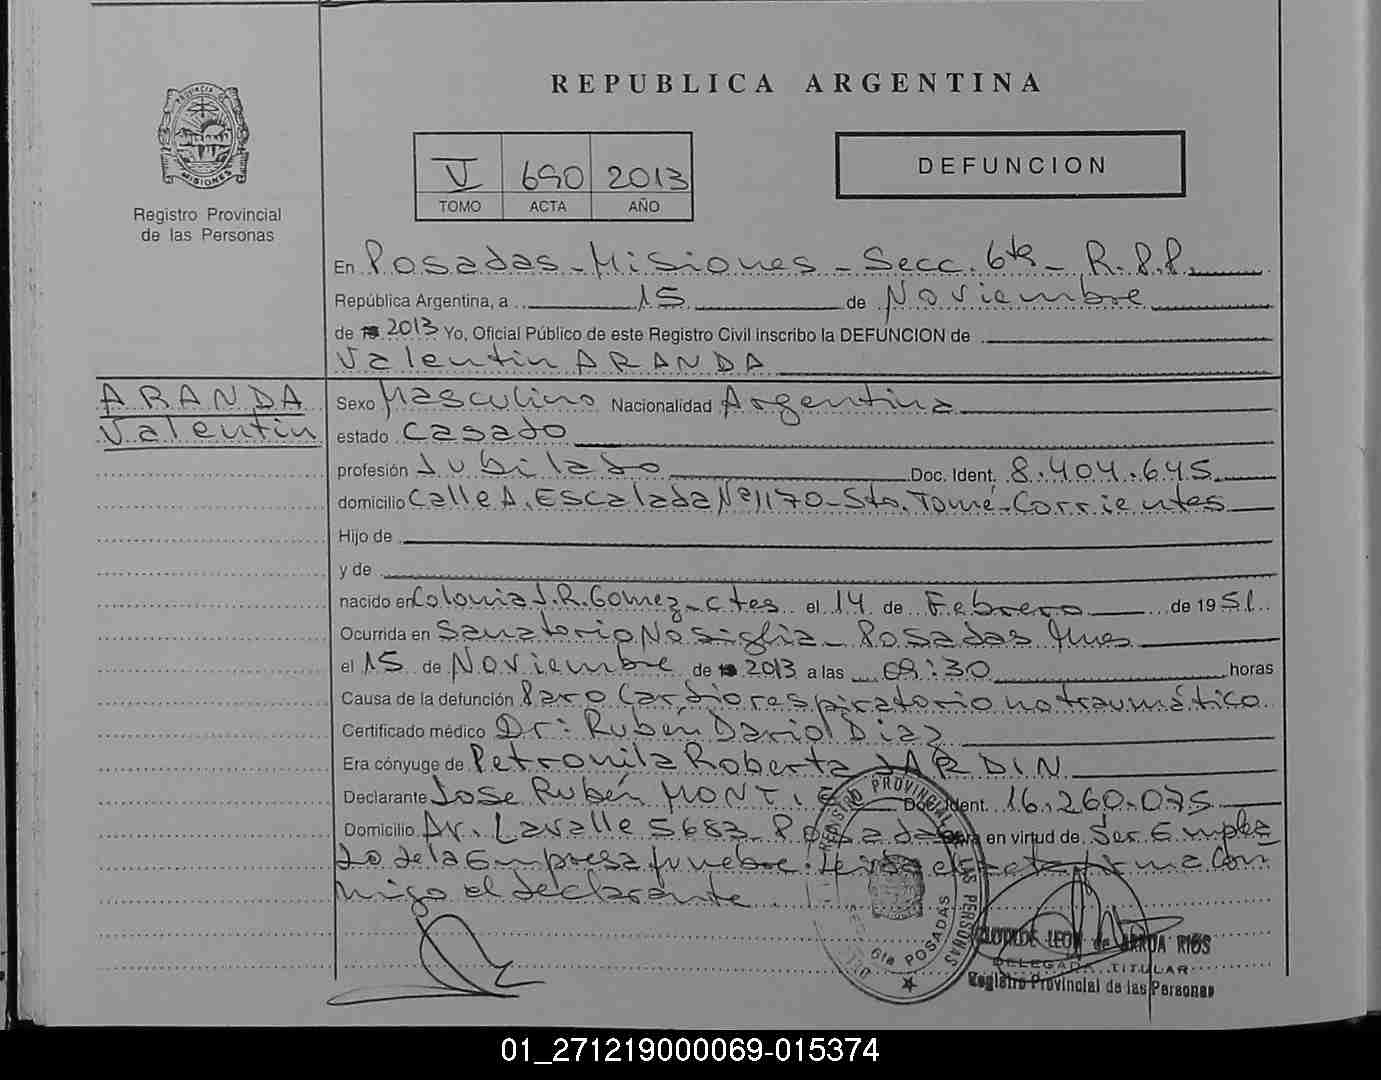 REPUBLICA ARGENTINA
PROVINCIA DE MISIONES
Registro Provincial
de las Personas
V 690 2013
TOMO ACTA AÑO
DEFUNCION
En Posadas - Misiones - Secc. 6ta - R.P.P.
República Argentina, a 15 de Noviembre
de 2013 Yo, Oficial Público de este Registro Civil inscribo la DEFUNCION de
Valentin ARANDA
ARANDA
Valentin
Sexo Masculino Nacionalidad Argentina
estado Casado
profesión Jubilado Doc. Ident. 8.404.645
domicilio Calle A. Escalada Nº 1170 - Sto. Tomé - Corrientes
Hijo de
y de
nacido en Colonia J.R. Gomez - Ctes. el 14 de Febrero de 1951.
Ocurrida en Sanatorio Nosiglia - Posadas Mnes
el 15 de Noviembre de 2013 a las 09:30 horas
Causa de la defunción Paro Cardiorespiratorio no traumático.
Certificado médico Dr: Rubén Dario Diaz
Era cónyuge de Petronila Roberta JARDIN
Declarante Jose Rubén MONTIE Doc. Ident. 16.260.075
Domicilio Av. Lavalle 5683 Posadas Obra en virtud de Ser Emplea
do de la Empresa funebre. Leida el acta firma Con
migo el declarante.
REGISTRO PROVINCIAL DE LAS PERSONAS
6ta POSADAS
CLOTILDE LEON de ARRUA RIOS
DELEGADA TITULAR
Registro Provincial de las Personas
01_271219000069-015374